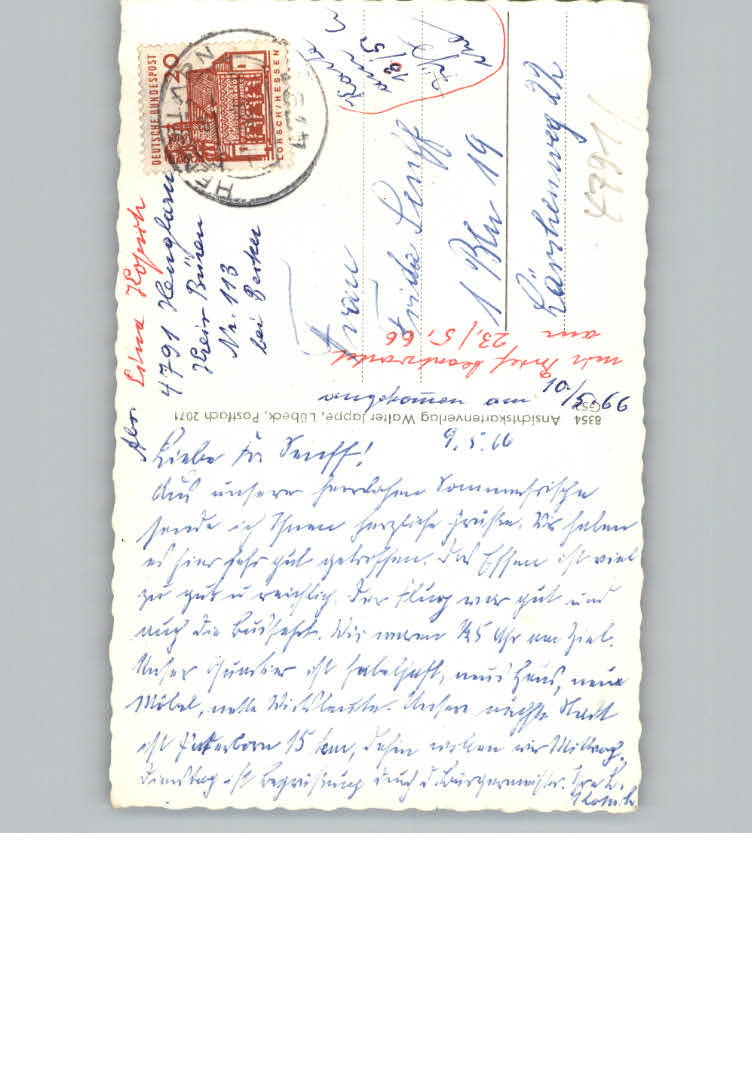 DEUTSCHE BUNDESPOST
20
LORSCH/HESSEN
Abs. Lina Kopsch
4791 Henglarn
Kreis Büren
Nr. 113
bei
Karte
am
13/5
Frau
Frida Senff
1 Bln 19
Lärchenweg 22
4791
mit Brief beantwortet
am 23/5. 66
angekommen am 10/5. 66
8354 Ansichtskartenverlag Walter Jappe, Lübeck, Postfach 2071
9.5.66
Liebe Fr. Senff!
Aus unserer Sommerfrische
sende ich Ihnen herzliche Grüße. Wir haben
es hier sehr gut getroffen. Das Essen ist viel
zu gut u reichlich. Der Flug war gut und
auch die Busfahrt. Wir waren 1/2 5 Uhr am Ziel.
Unser Quartier ist fabelhaft, neues Haus, neue
Möbel, nette Wirtsleute. Unsere nächste Stadt
ist Paderborn 15 km, dahin wollen wir Mittwoch.
Dienstag ist Begrüßung durch d. Bürgermeister. Ihre L.